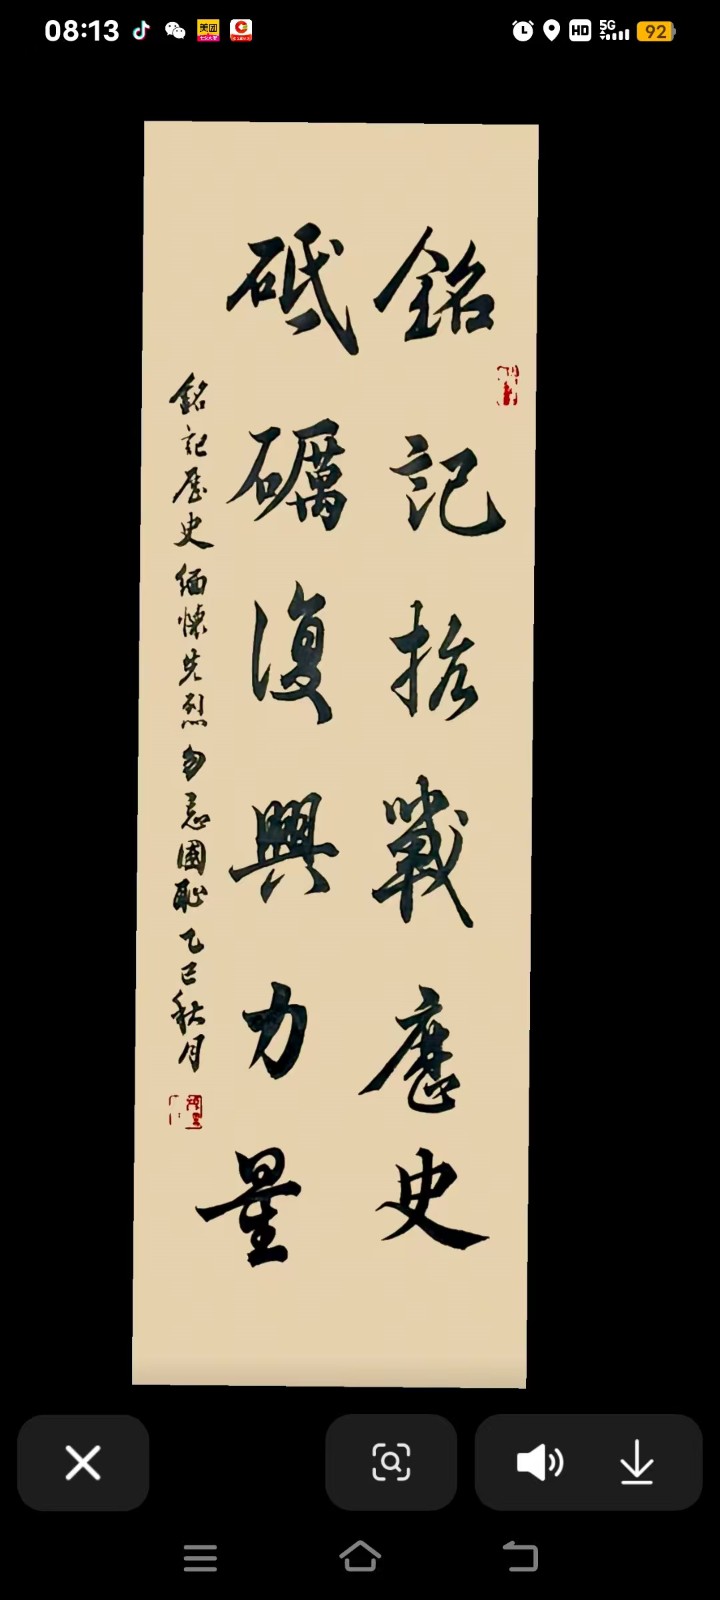 08:13
5G
HD
92
美团
銘記抗戰歷史
砥礪復興力量
銘記歷史缅懷先烈勿忘國恥乙巳秋月